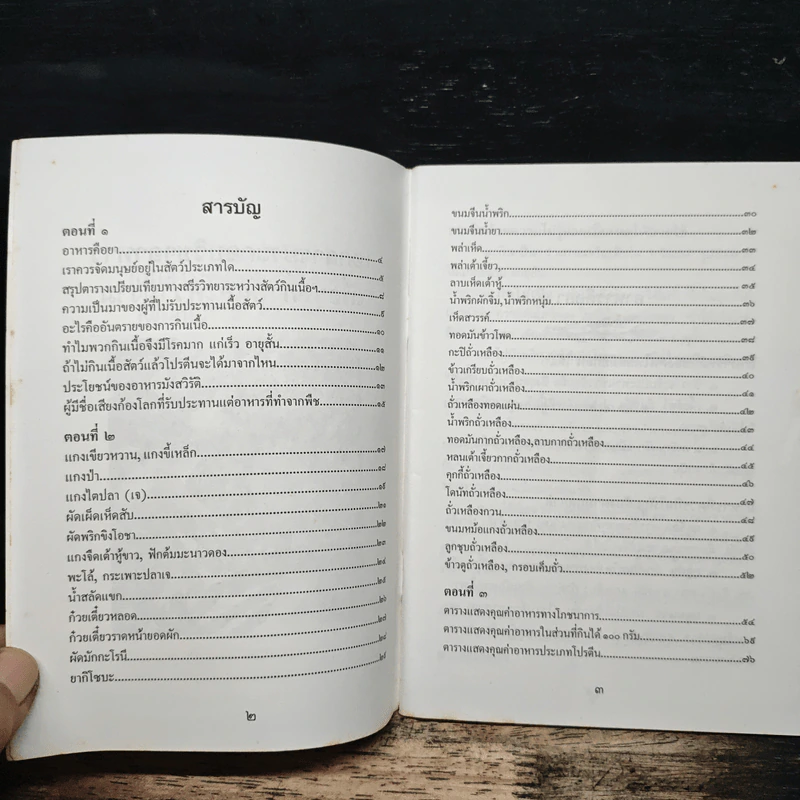 สารบัญ
ตอนที่ ๑
อาหารคือยา....................๔
เราควรจัดมนุษย์อยู่ในสัตว์ประเภทใด....................๕
สรุปตารางเปรียบเทียบทางสรีรวิทยาระหว่างสัตว์กินเนื้อฯ....................๘
ความเป็นมาของผู้ที่ไม่รับประทานเนื้อสัตว์....................๙
อะไรคืออันตรายของการกินเนื้อ....................๑๐
ทำไมพวกกินเนื้อจึงมีโรคมาก แก่เร็ว อายุสั้น....................๑๑
ถ้าไม่กินเนื้อสัตว์แล้วโปรตีนจะได้มาจากไหน....................๑๒
ประโยชน์ของอาหารมังสวิรัติ....................๑๓
ผู้มีชื่อเสียงก้องโลกที่รับประทานแต่อาหารที่ทำจากพืช....................๑๕
ตอนที่ ๒
แกงเขียวหวาน, แกงขี้เหล็ก....................๑๗
แกงป่า....................๑๘
แกงไตปลา (เจ)....................๑๙
ผัดเผ็ดเห็ดสับ....................๒๑
ผัดพริกขิงโอชา....................๒๒
แกงจืดเต้าหู้ขาว, ฟักต้มมะนาวดอง....................๒๓
พะโล้, กระเพาะปลาเจ....................๒๔
น้ำสลัดแขก....................๒๕
ก๋วยเตี๋ยวหลอด....................๒๖
ก๋วยเตี๋ยวราดหน้ายอดผัก....................๒๗
ผัดมักกะโรนี....................๒๘
ยากิโซบะ....................๒๙
๒
ขนมจีนน้ำพริก....................๓๐
ขนมจีนน้ำยา....................๓๒
พล่าเห็ด....................๓๓
พล่าเต้าเจี้ยว,....................๓๔
ลาบเห็ดเต้าหู้....................๓๕
น้ำพริกผักชิ้ม, น้ำพริกหนุ่ม....................๓๖
เห็ดสวรรค์....................๓๗
ทอดมันข้าวโพด....................๓๘
กะปิถั่วเหลือง....................๓๙
ข้าวเกรียบถั่วเหลือง....................๔๐
น้ำพริกเผาถั่วเหลือง....................๔๑
ถั่วเหลืองทอดแผ่น....................๔๒
น้ำพริกถั่วเหลือง....................๔๓
ทอดมันกากถั่วเหลือง,ลาบกากถั่วเหลือง....................๔๔
หลนเต้าเจี้ยวกากถั่วเหลือง....................๔๕
คุกกี้ถั่วเหลือง....................๔๖
โดนัทถั่วเหลือง....................๔๗
ถั่วเหลืองกวน....................๔๘
ขนมหม้อแกงถั่วเหลือง....................๔๙
ลูกชุบถั่วเหลือง....................๕๐
ข้าวตูถั่วเหลือง, กรอบเค็มถั่ว....................๕๒
ตอนที่ ๓
ตารางแสดงคุณค่าอาหารทางโภชนาการ....................๕๔
ตารางแสดงคุณค่าอาหารในส่วนที่กินได้ ๑๐๐ กรัม....................๖๕
ตารางแสดงคุณค่าอาหารประเภทโปรตีน....................๗๖
๓